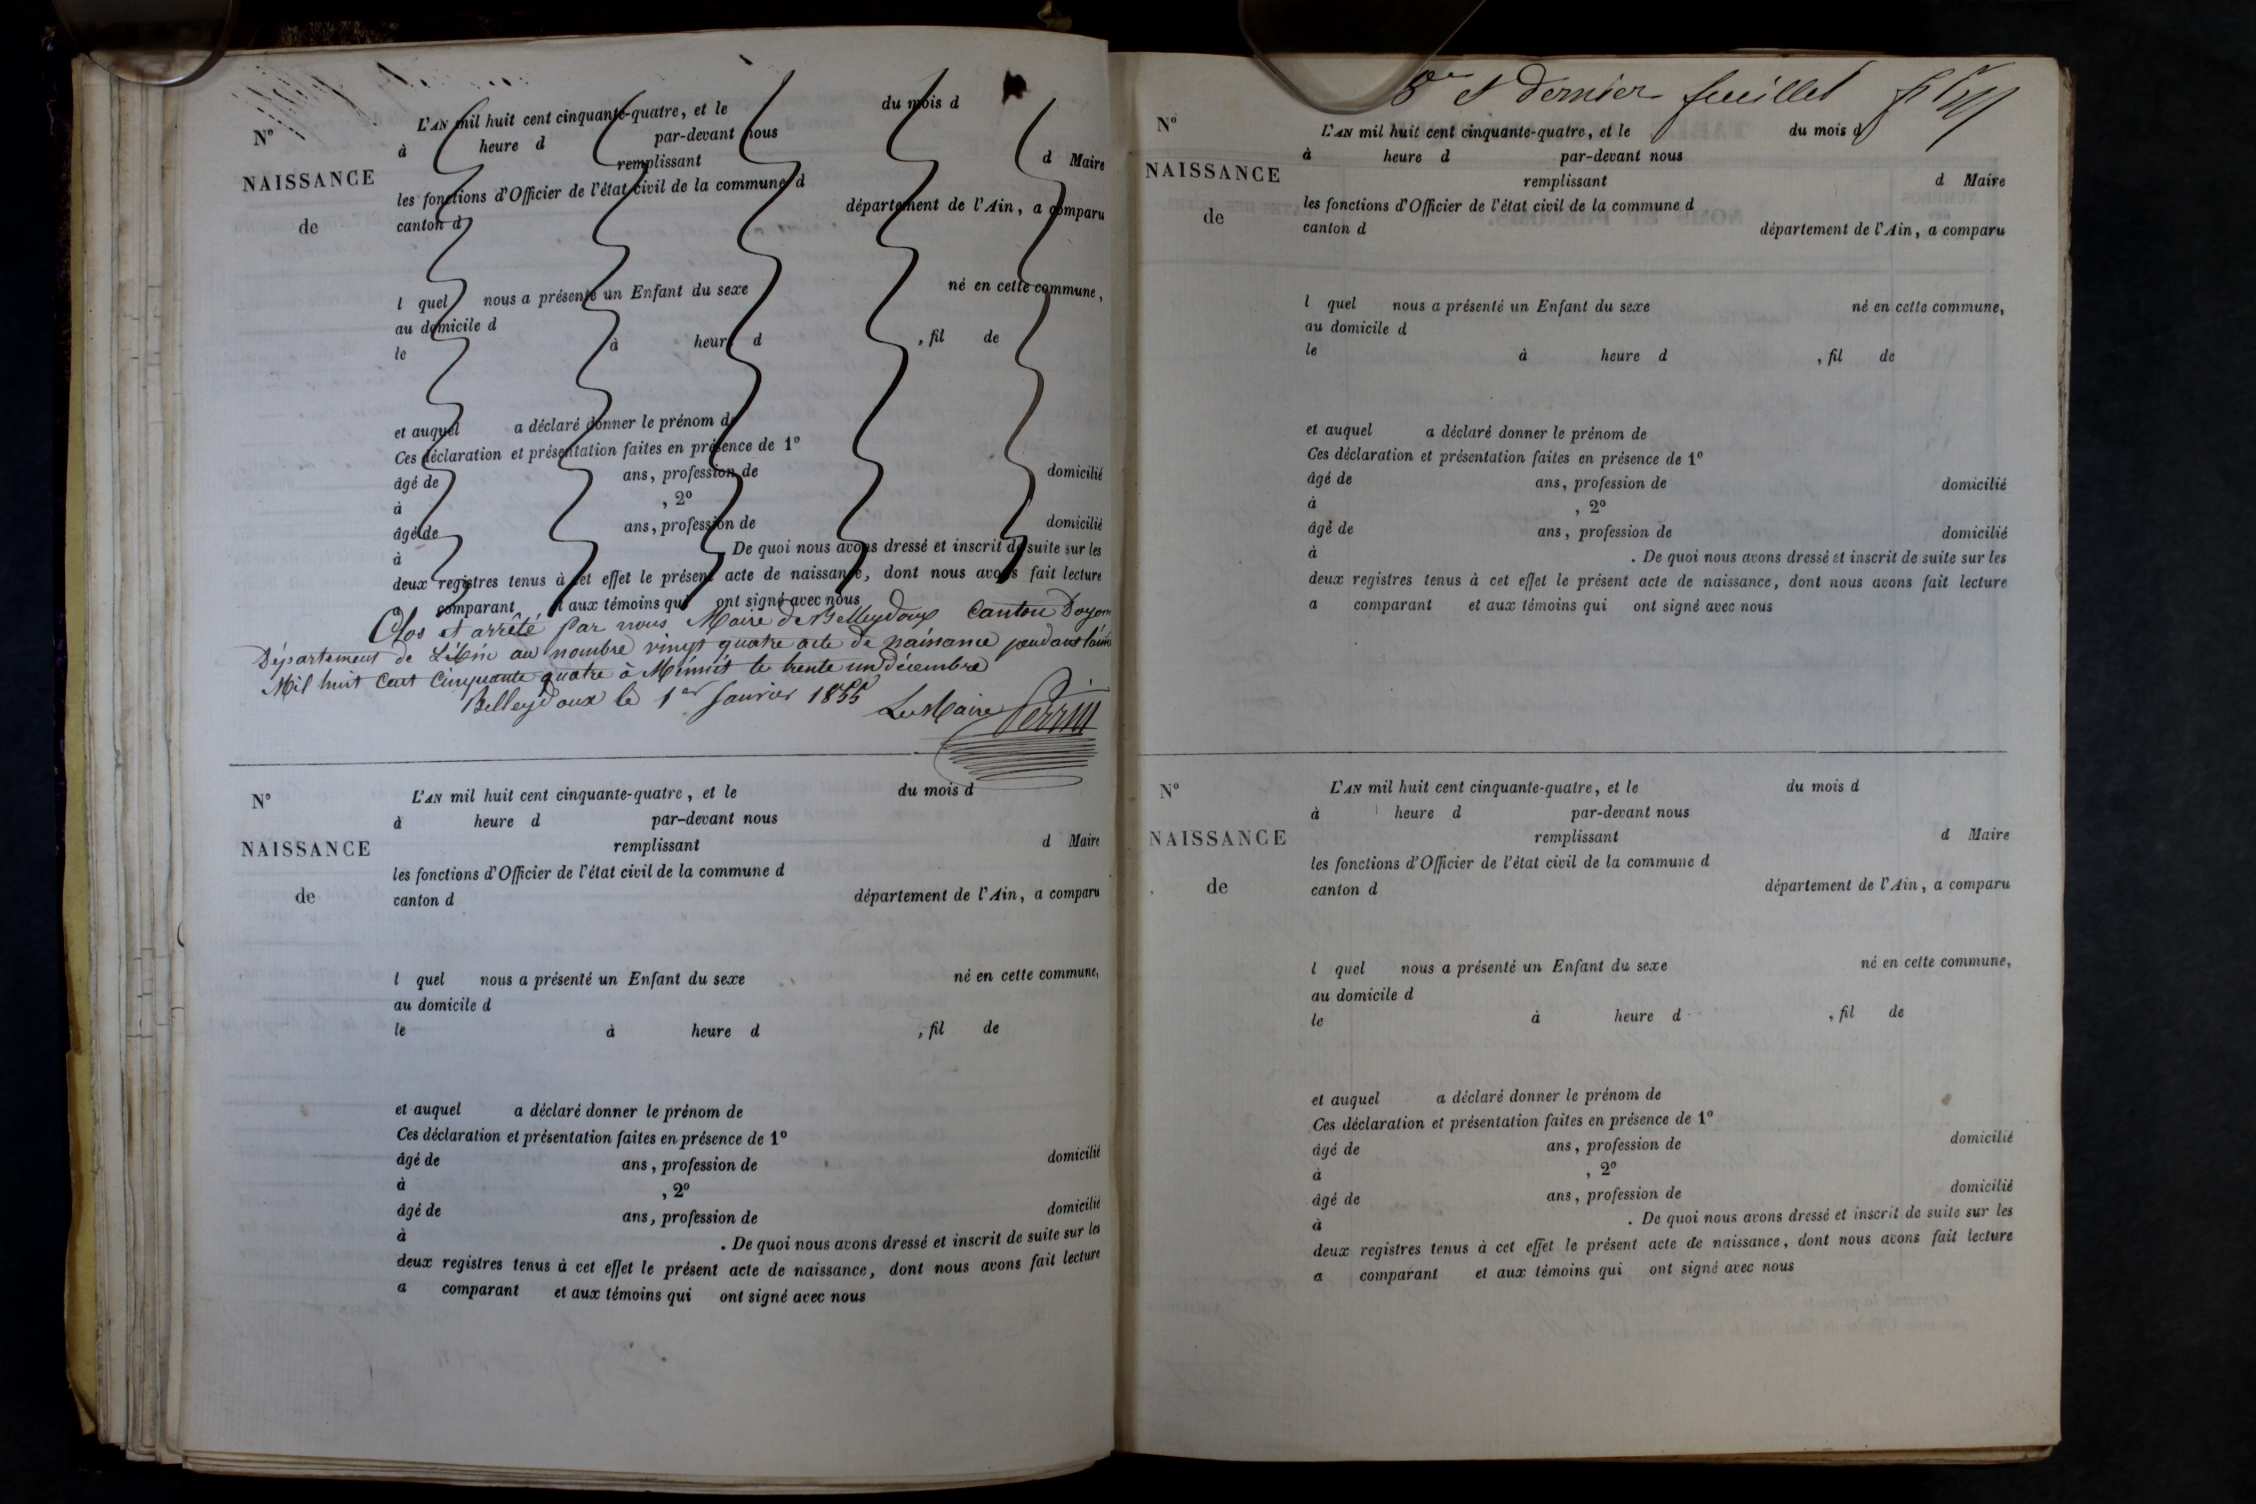 L'AN mil huit cent cinquante-quatre, et le du mois d
N° à heure d par-devant nous
remplissant d Maire
NAISSANCE les fonctions d'Officier de l'état civil de la commune d
de canton d département de l'Ain, a comparu
l quel nous a présenté un Enfant du sexe né en cette commune,
au domicile d
le à heure d , fil de
et auquel a déclaré donner le prénom de
Ces déclaration et présentation faites en présence de 1°
âgé de ans, profession de domicilié
à , 2°
âgé de ans, profession de domicilié
à De quoi nous avons dressé et inscrit de suite sur les
deux registres tenus à cet effet le présent acte de naissance, dont nous avons fait lecture
a comparant et aux témoins qui ont signé avec nous
Clos et arrêté par nous Maire de Belleydoux Canton Doyon
Département de L'Ain au nombre vingt quatre acte de naissance pendant
Mil huit Cent Cinquante quatre à Minuit le trente un décembre
Belleydoux le 1er Janvier 1855 Le Maire Perrin
N° L'AN mil huit cent cinquante-quatre, et le du mois d
à heure d par-devant nous
NAISSANCE remplissant d Maire
les fonctions d'Officier de l'état civil de la commune d
de canton d département de l'Ain, a comparu
l quel nous a présenté un Enfant du sexe né en cette commune,
au domicile d
le à heure d , fil de
et auquel a déclaré donner le prénom de
Ces déclaration et présentation faites en présence de 1°
âgé de ans, profession de domicilié
à , 2°
âgé de ans, profession de domicilié
à . De quoi nous avons dressé et inscrit de suite sur les
deux registres tenus à cet effet le présent acte de naissance, dont nous avons fait lecture
a comparant et aux témoins qui ont signé avec nous
8e et dernier feuillet
N° L'AN mil huit cent cinquante-quatre, et le du mois d
à heure d par-devant nous
NAISSANCE remplissant d Maire
les fonctions d'Officier de l'état civil de la commune d
de canton d département de l'Ain, a comparu
l quel nous a présenté un Enfant du sexe né en cette commune,
au domicile d
le à heure d , fil de
et auquel a déclaré donner le prénom de
Ces déclaration et présentation faites en présence de 1°
âgé de ans, profession de domicilié
à , 2°
âgé de ans, profession de domicilié
à . De quoi nous avons dressé et inscrit de suite sur les
deux registres tenus à cet effet le présent acte de naissance, dont nous avons fait lecture
a comparant et aux témoins qui ont signé avec nous
N° L'AN mil huit cent cinquante-quatre, et le du mois d
à heure d par-devant nous
NAISSANCE remplissant d Maire
les fonctions d'Officier de l'état civil de la commune d
de canton d département de l'Ain, a comparu
l quel nous a présenté un Enfant du sexe né en cette commune,
au domicile d
le à heure d , fil de
et auquel a déclaré donner le prénom de
Ces déclaration et présentation faites en présence de 1°
âgé de ans, profession de domicilié
à , 2°
âgé de ans, profession de domicilié
à . De quoi nous avons dressé et inscrit de suite sur les
deux registres tenus à cet effet le présent acte de naissance, dont nous avons fait lecture
a comparant et aux témoins qui ont signé avec nous